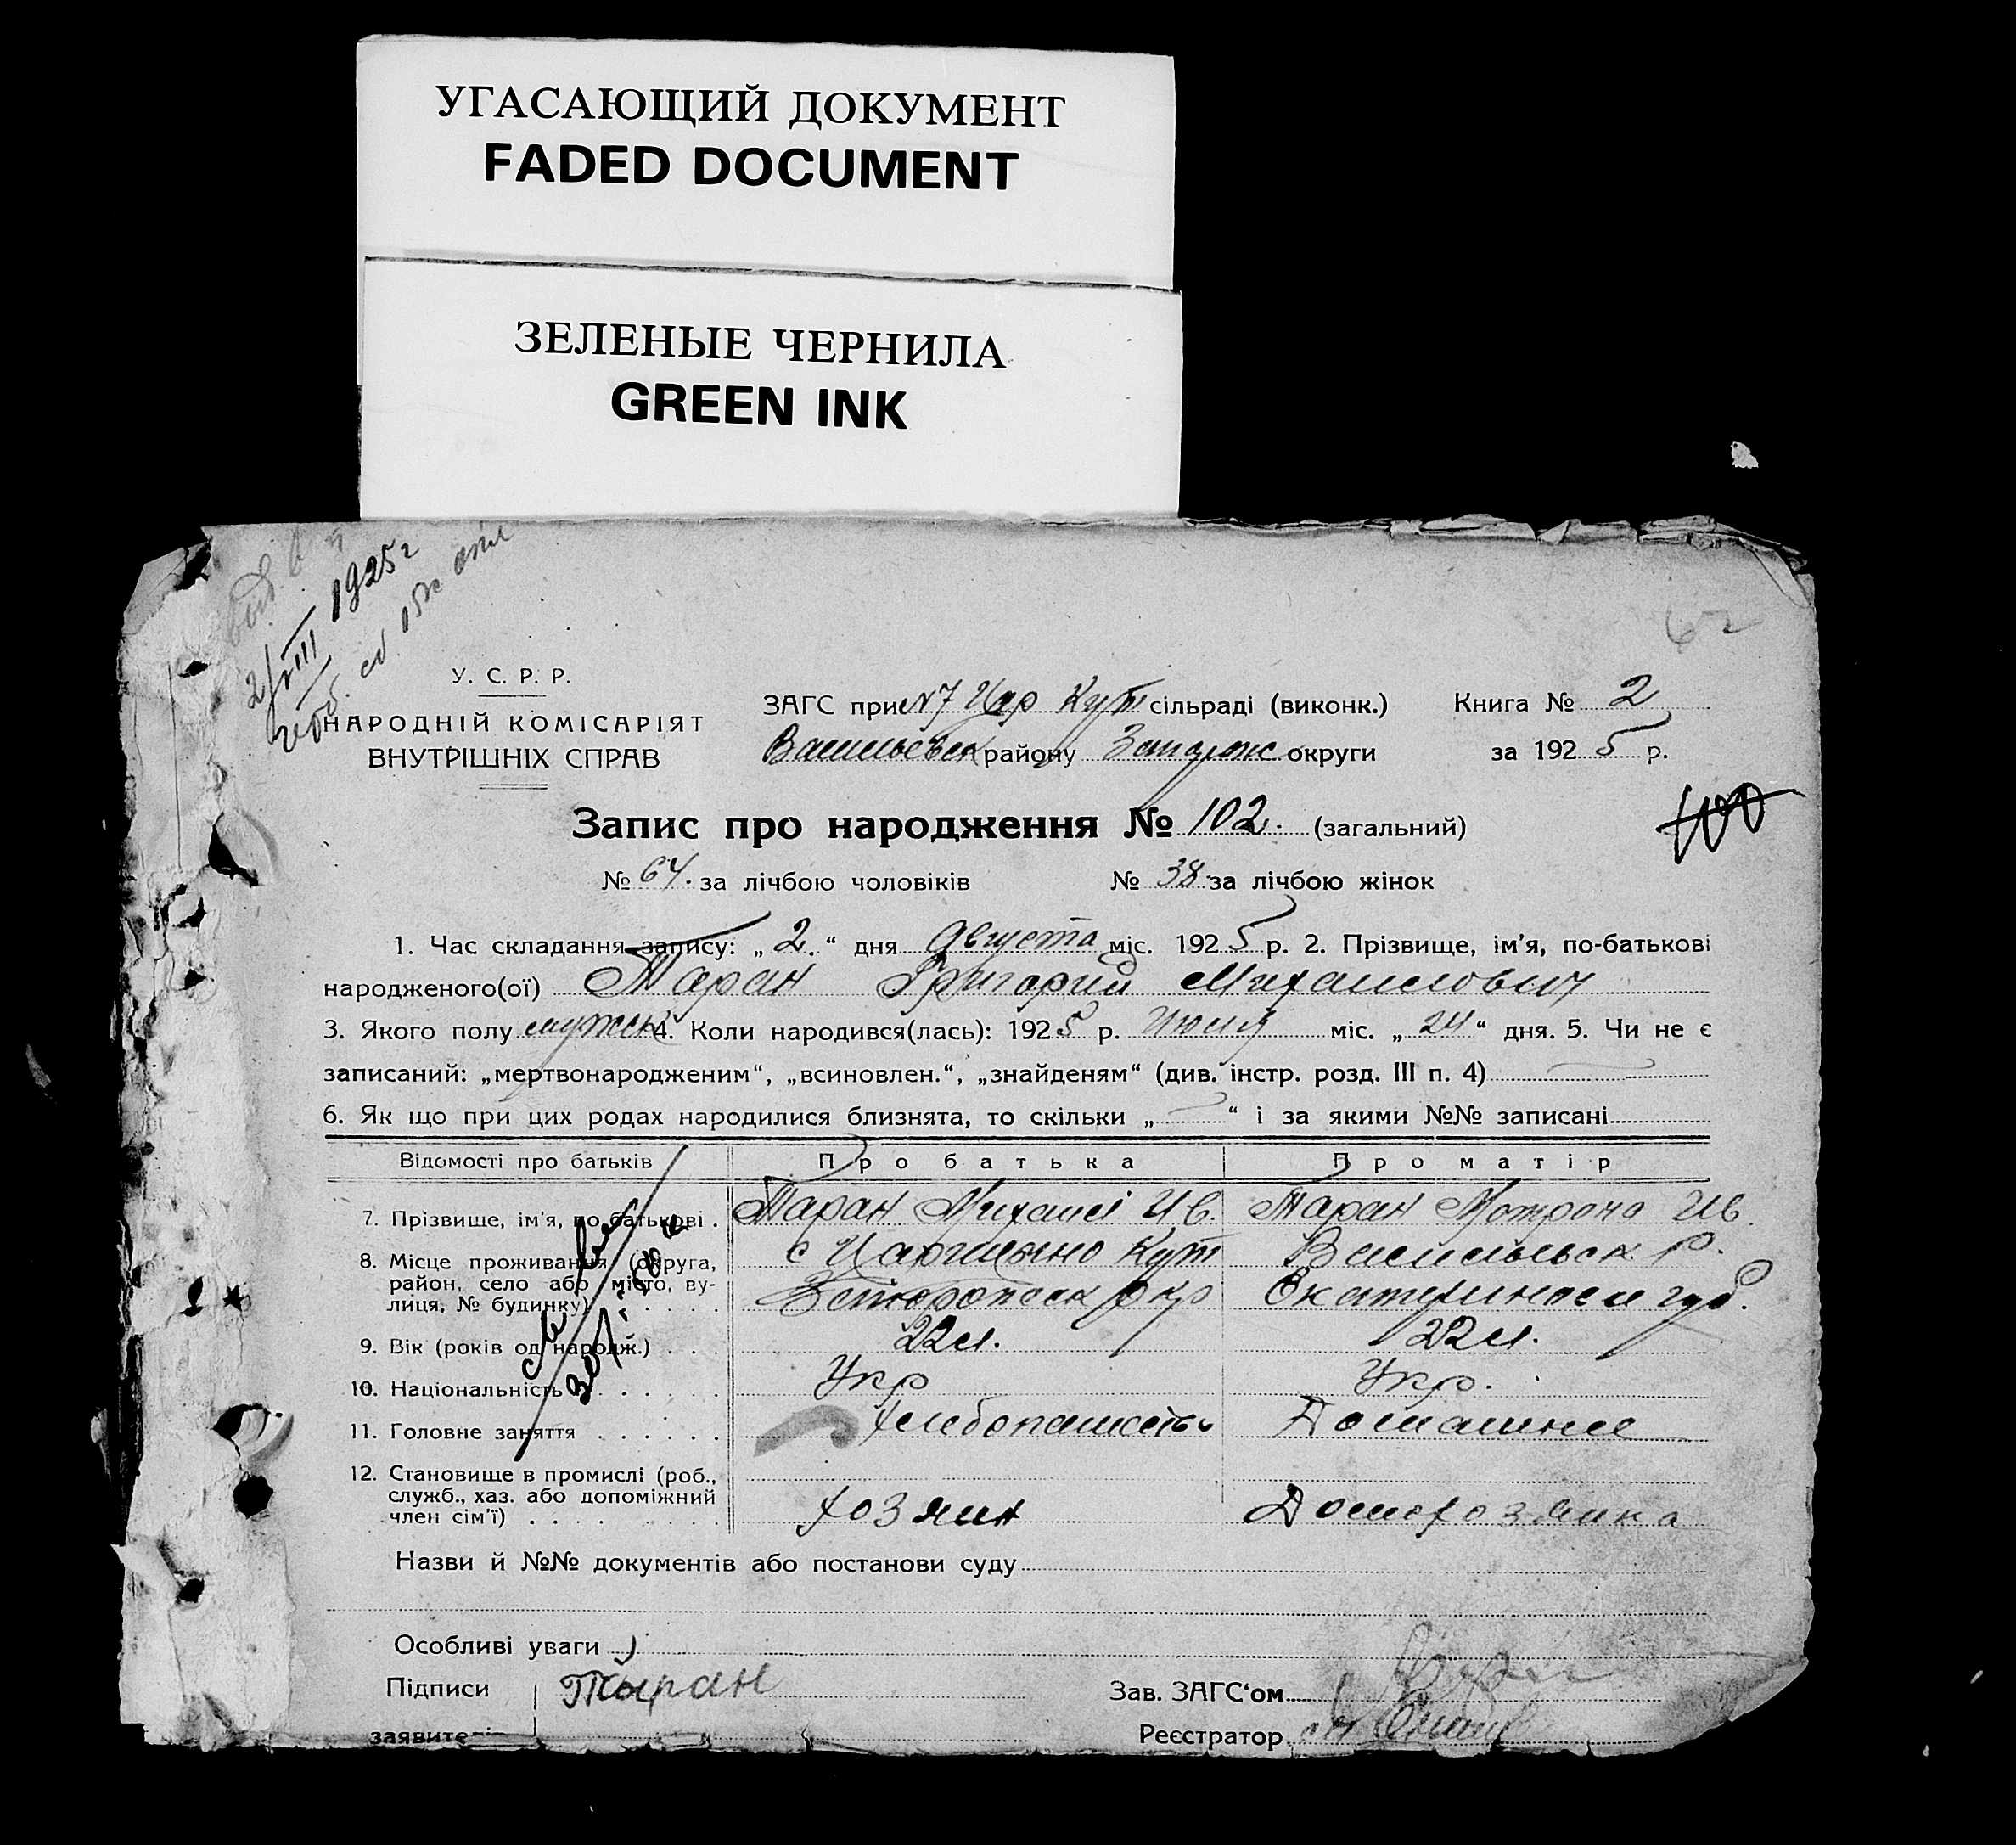 УГАСАЮЩИЙ ДОКУМЕНТ
FADED DOCUMENT
ЗЕЛЕНЫЕ ЧЕРНИЛА
GREEN INK
2/VIII 1925 г
62
У. С. Р. Р.
НАРОДНІЙ КОМІСАРІЯТ
ВНУТРІШНІХ СПРАВ
ЗАГС при №7 Цар Кут сільраді (виконк.) Книга № 2
Васильевск району Запорож округи за 1925 р.
Запис про народження № 102. (загальний)
100
№ 64. за лічбою чоловіків № 38 за лічбою жінок
1. Час складання запису: „ 2. “ дня Августа міс. 1925 р. 2. Прізвище, ім'я, по-батькові
народженого(ої) Таран Григорий Михаилович
3. Якого полу мужск 4. Коли народився(лась): 1925 р. Июля міс. „ 24 “ дня. 5. Чи не є
записаний: „мертвонародженим“, „всиновлен.“, „знайденям“ (див. інстр. розд. III п. 4)
6. Як що при цих родах народилися близнята, то скільки „ “ і за якими №№ записані
Відомості про батьків Про батька Про матір
7. Прізвище, ім'я, по батькові . Таран Михаил Ив. Таран Мотрона Ив.
8. Місце проживання (округа, район, село або місто, ву-
лиця, № будинку) с Царицыно Кут Васильевск р.
окр Екатеринославск губ.
9. Вік (років од народж.) . . . 22 л. 22 л.
10. Національність . . . . . . Укр Укр.
11. Головне заняття . . . . . . Хлебопашеств Домашнее
12. Становище в промислі (роб.,
служб., хаз. або допоміжний
член сім'ї) . . . . . . . . Хозяин Домохозяика
Назви й №№ документів або постанови суду
Особливі уваги
Підписи Таран Зав. ЗАГС‘ом
заявите Реєстратор